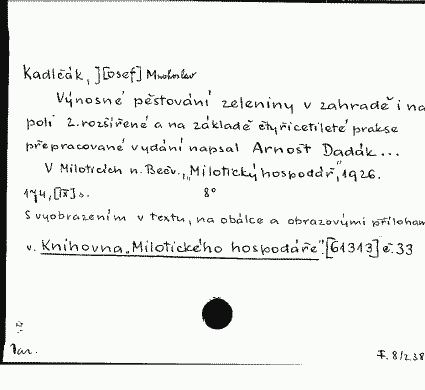 Kadlčák, J[osef] Miroslav
Výnosné pěstování zeleniny v zahradě i na
poli 2. rozšířené a na základě čtyřicetileté prakse
přepracované vydání napsal Arnošt Dadák...
V Miloticích n. Bečv., "Milotický hospodář", 1926.
174, [IX] s. 8°
S vyobrazením v textu, na obálce a obrazovými příloham
v. Knihovna "Milotického hospodáře". [61313] č. 33
Var.
F. 8/238